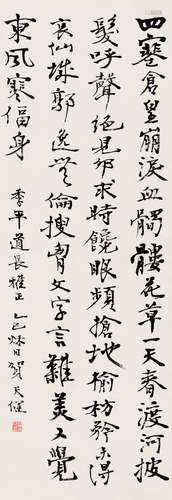 四塞倉皇崩淚血髑髏花草一天春渡河披
髮呼聲絕見卵求時饞眼頻搶地榆枋矜得
哀仙城郭逸無倫搜胃文字言難美又覺
東風寒偪身
季平道長雅正 乙巳秋日賀天健